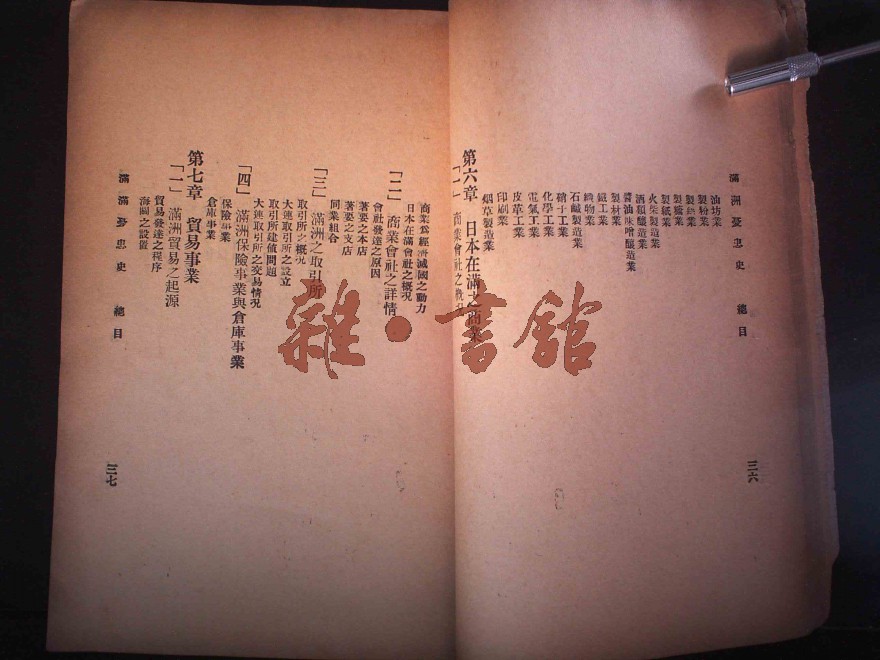 滿洲憂患史 總目
油坊業
製粉業
製絲業
製糖業
製紙業
火柴製造業
酒類釀造業
醬油味噌釀造業
製材業
鐵工業
織物業
石鹼製造業
硝子工業
化學工業
電氣工業
皮革工業
印刷業
烟草製造業
第六章 日本在滿之商業
「一」 商業會社之概況
三六
商業爲經濟滅國之動力
日本在滿會社之概況
「二」 商業會社之詳情
會社發達之原因
著要之本店
著要之支店
同業組合
「三」 滿洲之取引所
取引所之概況
大連取引所之設立
取引所建值問題
大連取引所之交易情況
「四」 滿洲保險事業與倉庫事業
保險事業
倉庫事業
第七章 貿易事業
「一」 滿洲貿易之起源
貿易發達之程序
海關之設置
滿洲憂患史 總目
三七
雜·書館